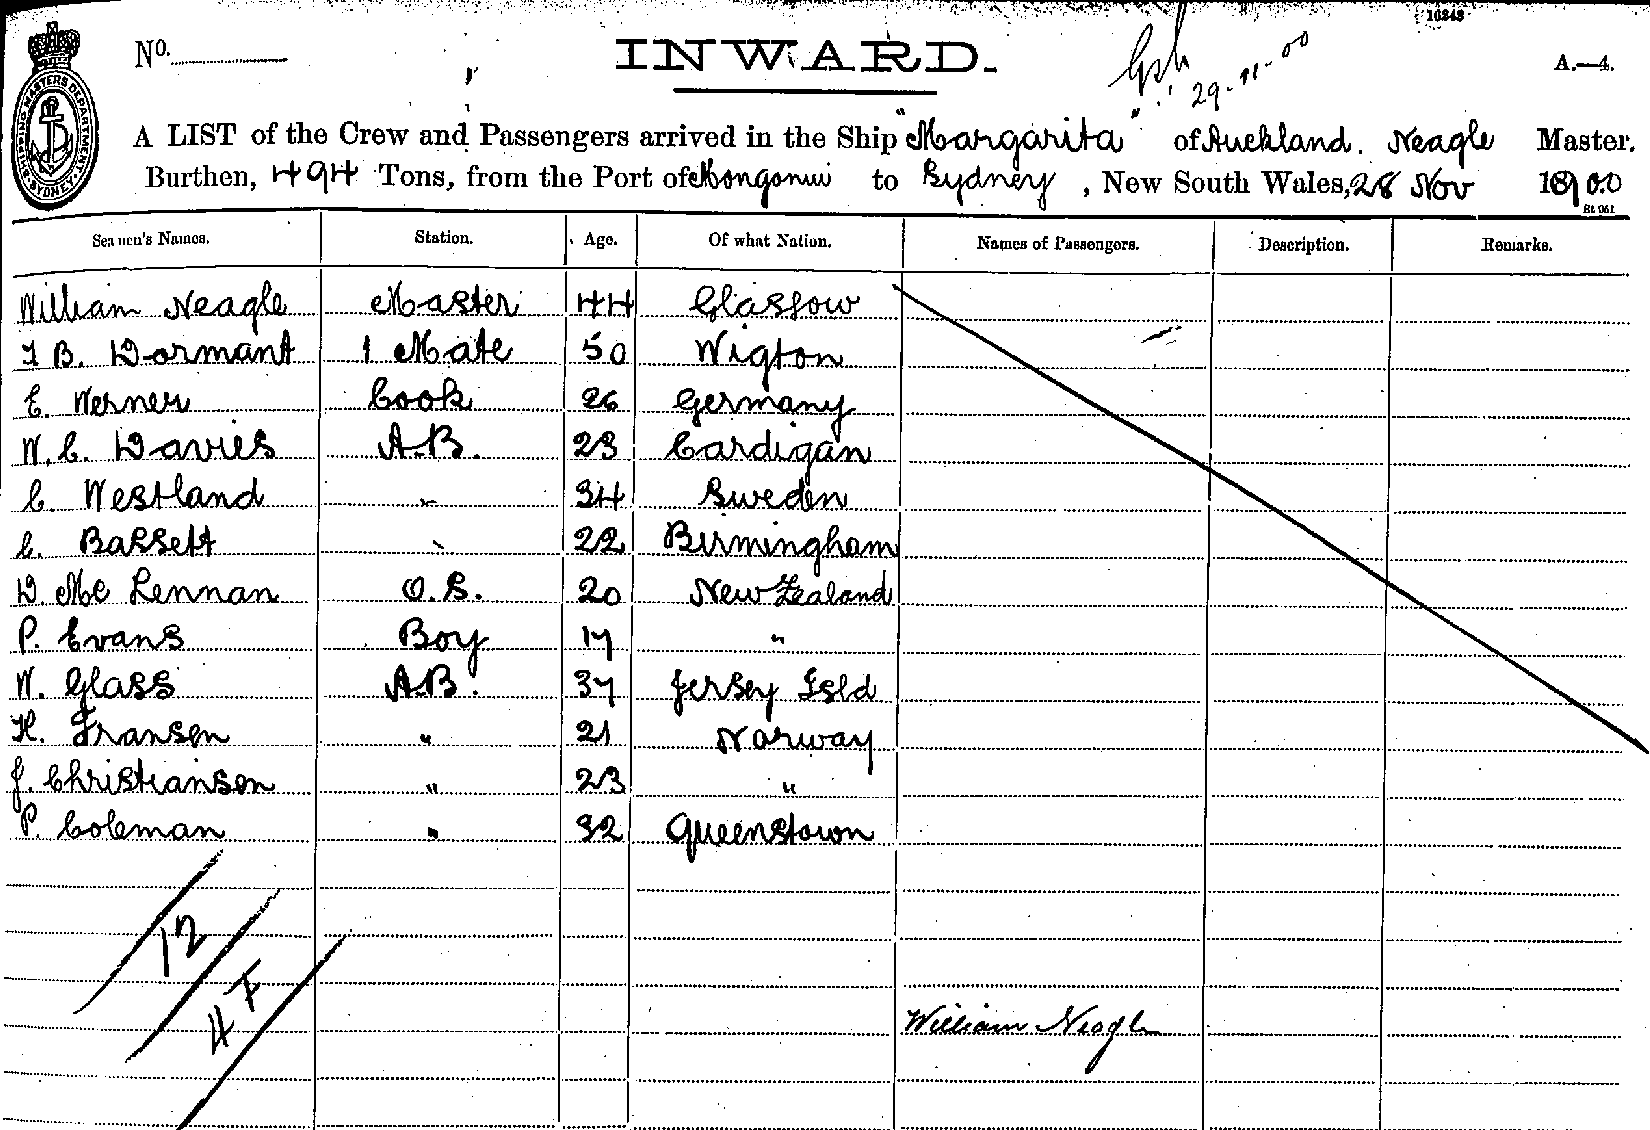 10343
No.
INWARD.
29-11-00
A.—4.
SHIPPING MASTERS DEPARTMENT SYDNEY
A LIST of the Crew and Passengers arrived in the Ship "Margarita" of Auckland. Neagle Master.
Burthen, 494 Tons, from the Port of Mongonui to Sydney, New South Wales, 28 Nov 1900
Seamen's Names. Station. Age. Of what Nation. Names of Passengers. Description. Remarks.
William Neagle Master 44 Glasgow
B. Dormant 1 Mate 50 Wigton
E. Werner Cook 26 Germany
W. C. Davies A.B. 23 Cardigan
C. Westland " 34 Sweden
C. Bassett " 22 Birmingham
D. Mc Lennan O.S. 20 New Zealand
P. Evans Boy 17 "
W. Glass A.B. 37 Jersey Isld
H. Fransen " 21 Norway
J. Christiansen " 23 "
P. Coleman " 32 Queenstown
12
4 F
William Neagle